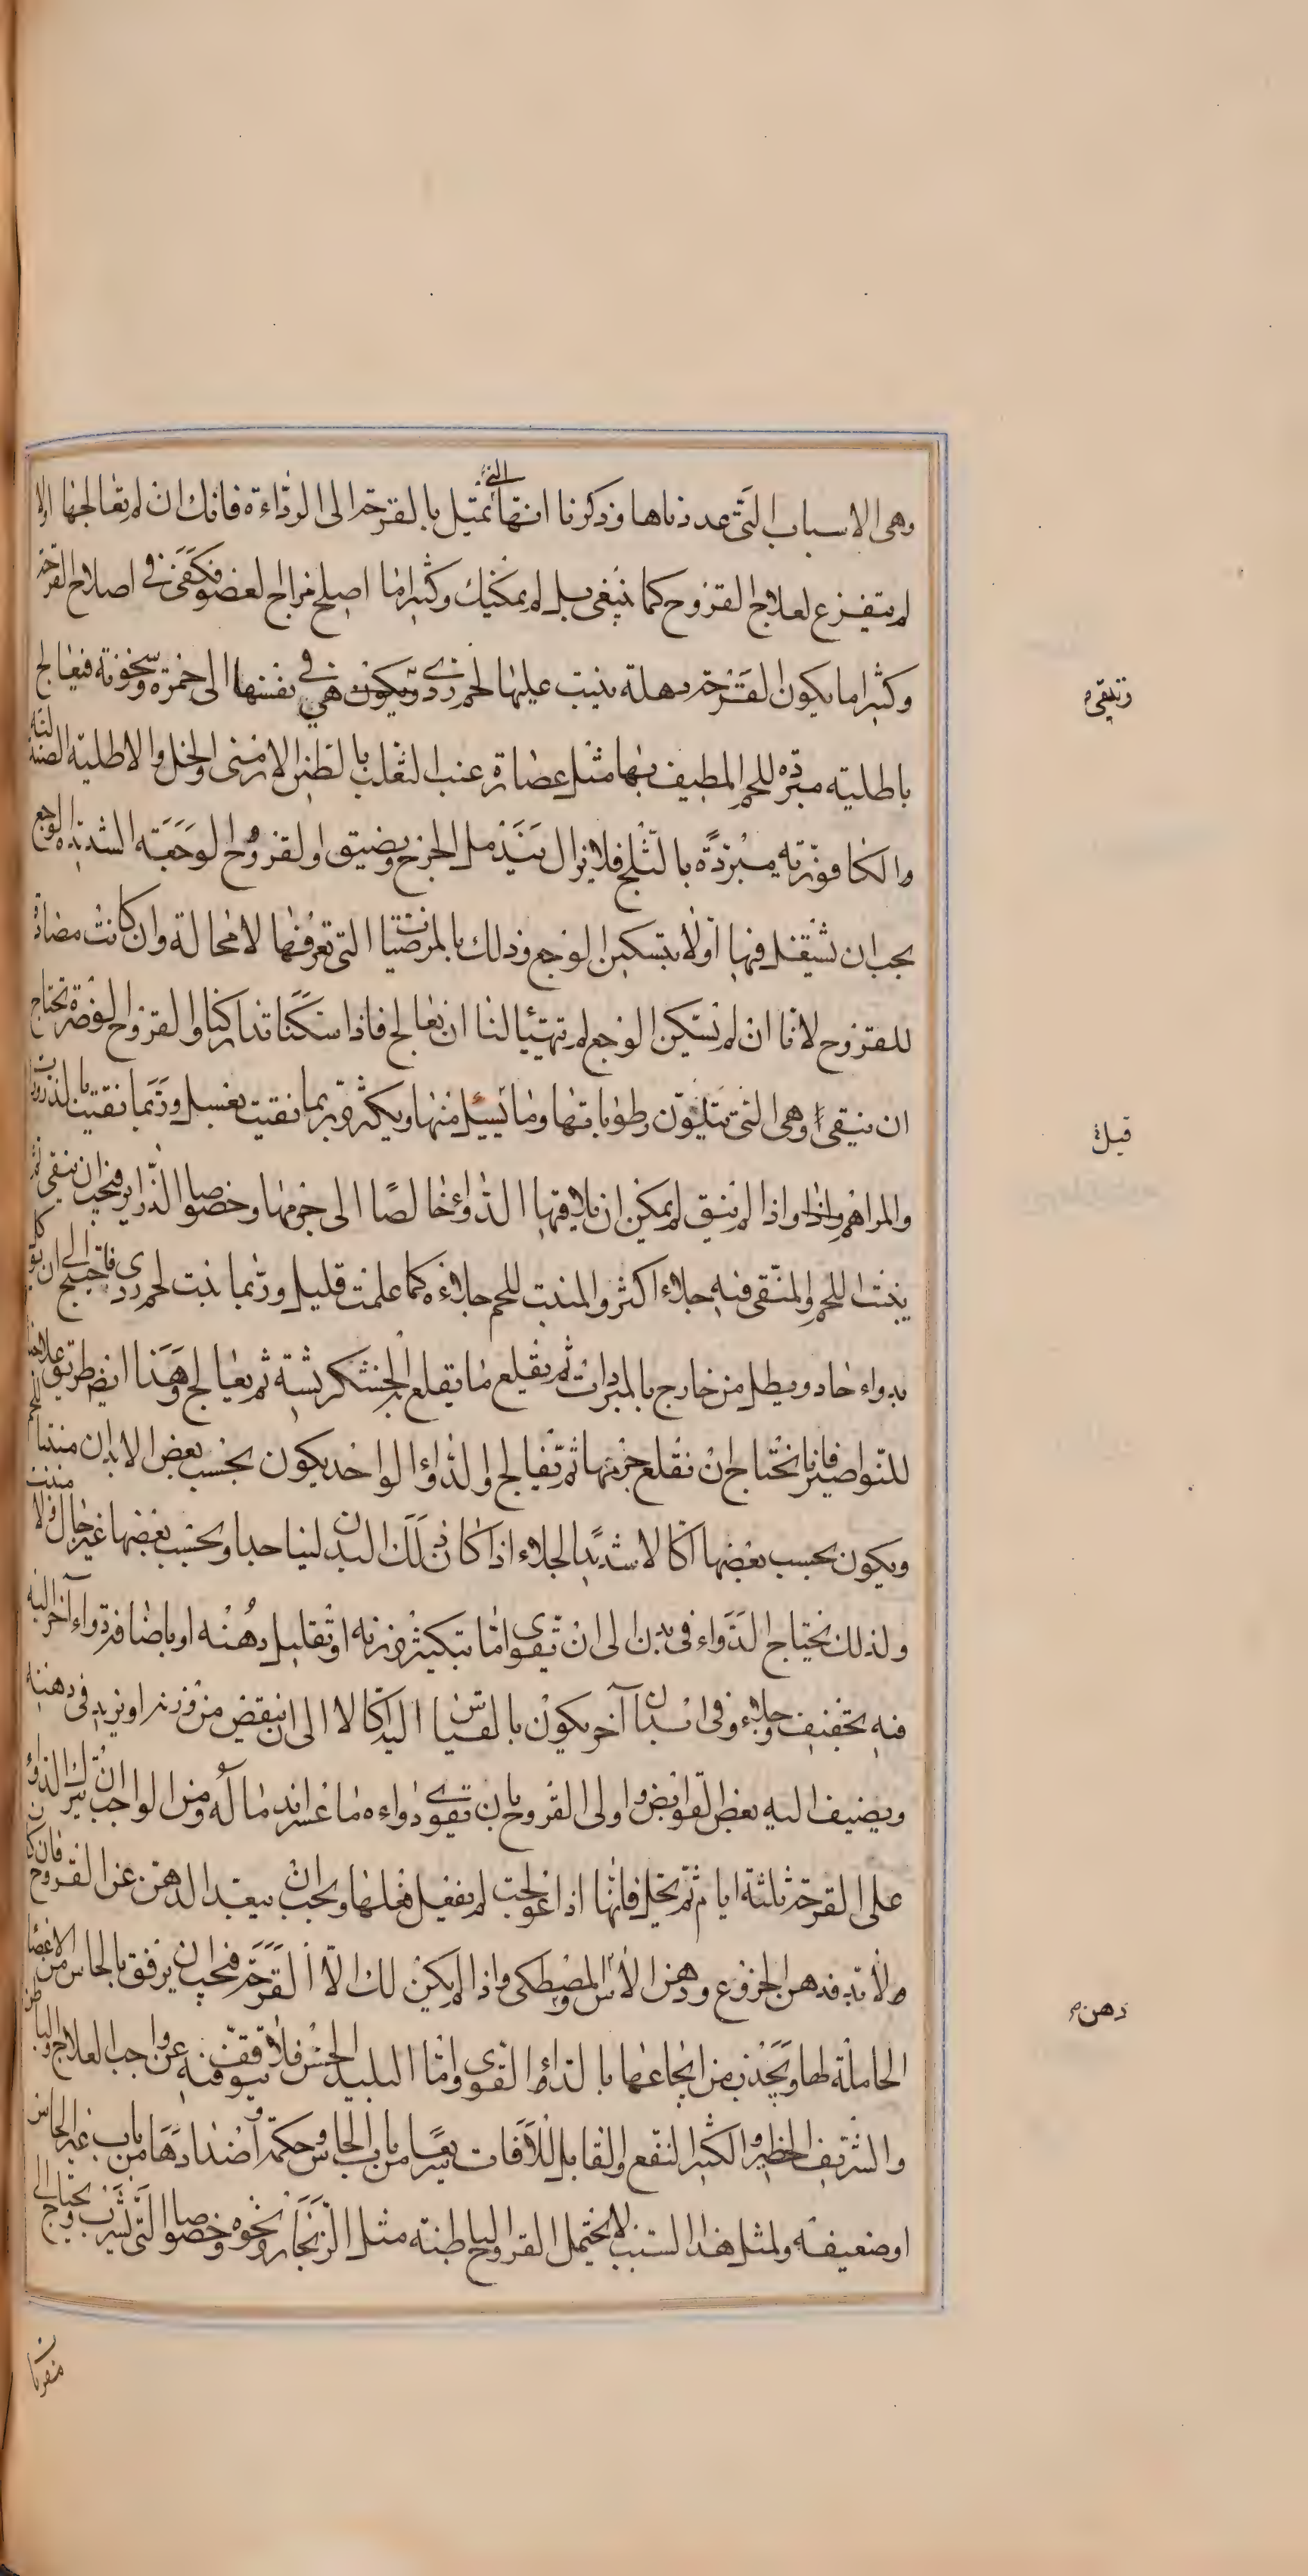 وهى الاسباب التى عددناها وذكرنا انها التى تميل بالقرحة الى الرداءة فانك ان لم تعالجها اولا
لم يتفرع لعلاج القروح كما ينبغى بل لم يمكنك وكثيرا ما اصلح مزاج العضو فكفى فى اصلاح القرحة
وكثيرا ما يكون القرحة رهلة ينبت عليها لحم ردى ويكون هى فى نفسها الى حمرة وسخونة فيعالج
وتنقى
باطلية مبردة للحم المطيف بها مثل عصارة عنب الثعلب بالطين الارمنى والخل والاطلية الصندلية
والكافورية مبردة بالثلج فلا يزال يندمل الجرح ويضيق والقروح الوجعة الشديدة الوجع
يجب ان تشتغل فيها اولا بتسكين الوجع وذلك بالمرخيات التى تعرفها لا محالة وان كانت مضادة
للقروح لانا ان لم نسكن الوجع لم تتهيأ لنا ان نعالج فاذا سكنا تداركنا والقروح الوضرة تحتاج
ان ينقى وهى التى تتلون رطوباتها وما يسيل منها ويكثر وربما نقيت بغسل وربما نقيت بالذرورات
قبل
والمراهم واذا لم ينق لم يمكن ان يلاقيها الدواء خالصا الى جرمها وخصوصا الذراير فيجب ان ينقى ثم
ينبت اللحم والمنقى فيه جلاء اكثر والمنبت للحم جلاؤه كما علمت قليل وربما نبت لحم ردى فاحتيج الى ان
بدواء حاد ويطلى من خارج بالمبردات ثم يقلع ما يقلع الخشكريشة ثم يعالج وهذا ايضا طريق علاجنا
للنواصير فانا نحتاج ان نقلع خزفها ثم نعالج والدواء الواحد يكون بحسب بعض الابدان منبتا للحم
ويكون بحسب بعضها اكالا شديد الجلاء اذا كان ذلك البدن لينا جدا وبحسب بعضها غير جال ولا منبت
ولذلك يحتاج الدواء فى بدن الى ان تقوى اما بتكثير وزنه او تقليل دهنه او باضافة دواء آخر اليه
فيه تجفيف وجلاء وفى ابدان آخر يكون بالقياس اليه اكالا الى ان ينقص من وزنه او نزيد فى دهنه
ويضيف اليه بعض القوابض واولى القروح بان تقوى دواءه ما عسر اندماله ومن الواجب ان يترك الدواء
على القرحة ثلثة ايام ثم تحل فانها اذا عولجت لم يفعل فعلها ويجب ان يبعد الدهن عن القروح فان كان
ولا بد فدهن الخروع ودهن الآس والمصطكى واذا لم يكن لك الا القرحة فيجب ان يرفق بالحاس من الاعضاء
دهن
الحاملة لها ويجذب من ايجاعها بالدواء القوى واما البليد الحس فلا توقف فيه عن واجب العلاج والباطن
والشريف الخطير والكثير النفع والقابل للآفات يسيرا من باب الحاس وحكمه اضدادها من باب غير الحاس
او ضعيفة ولمثل هذا السبب لا يحتمل القروح الباطنة مثل الزنجار ونحوه وخصوصا التى يشرب ويحتاج الى
مغريات